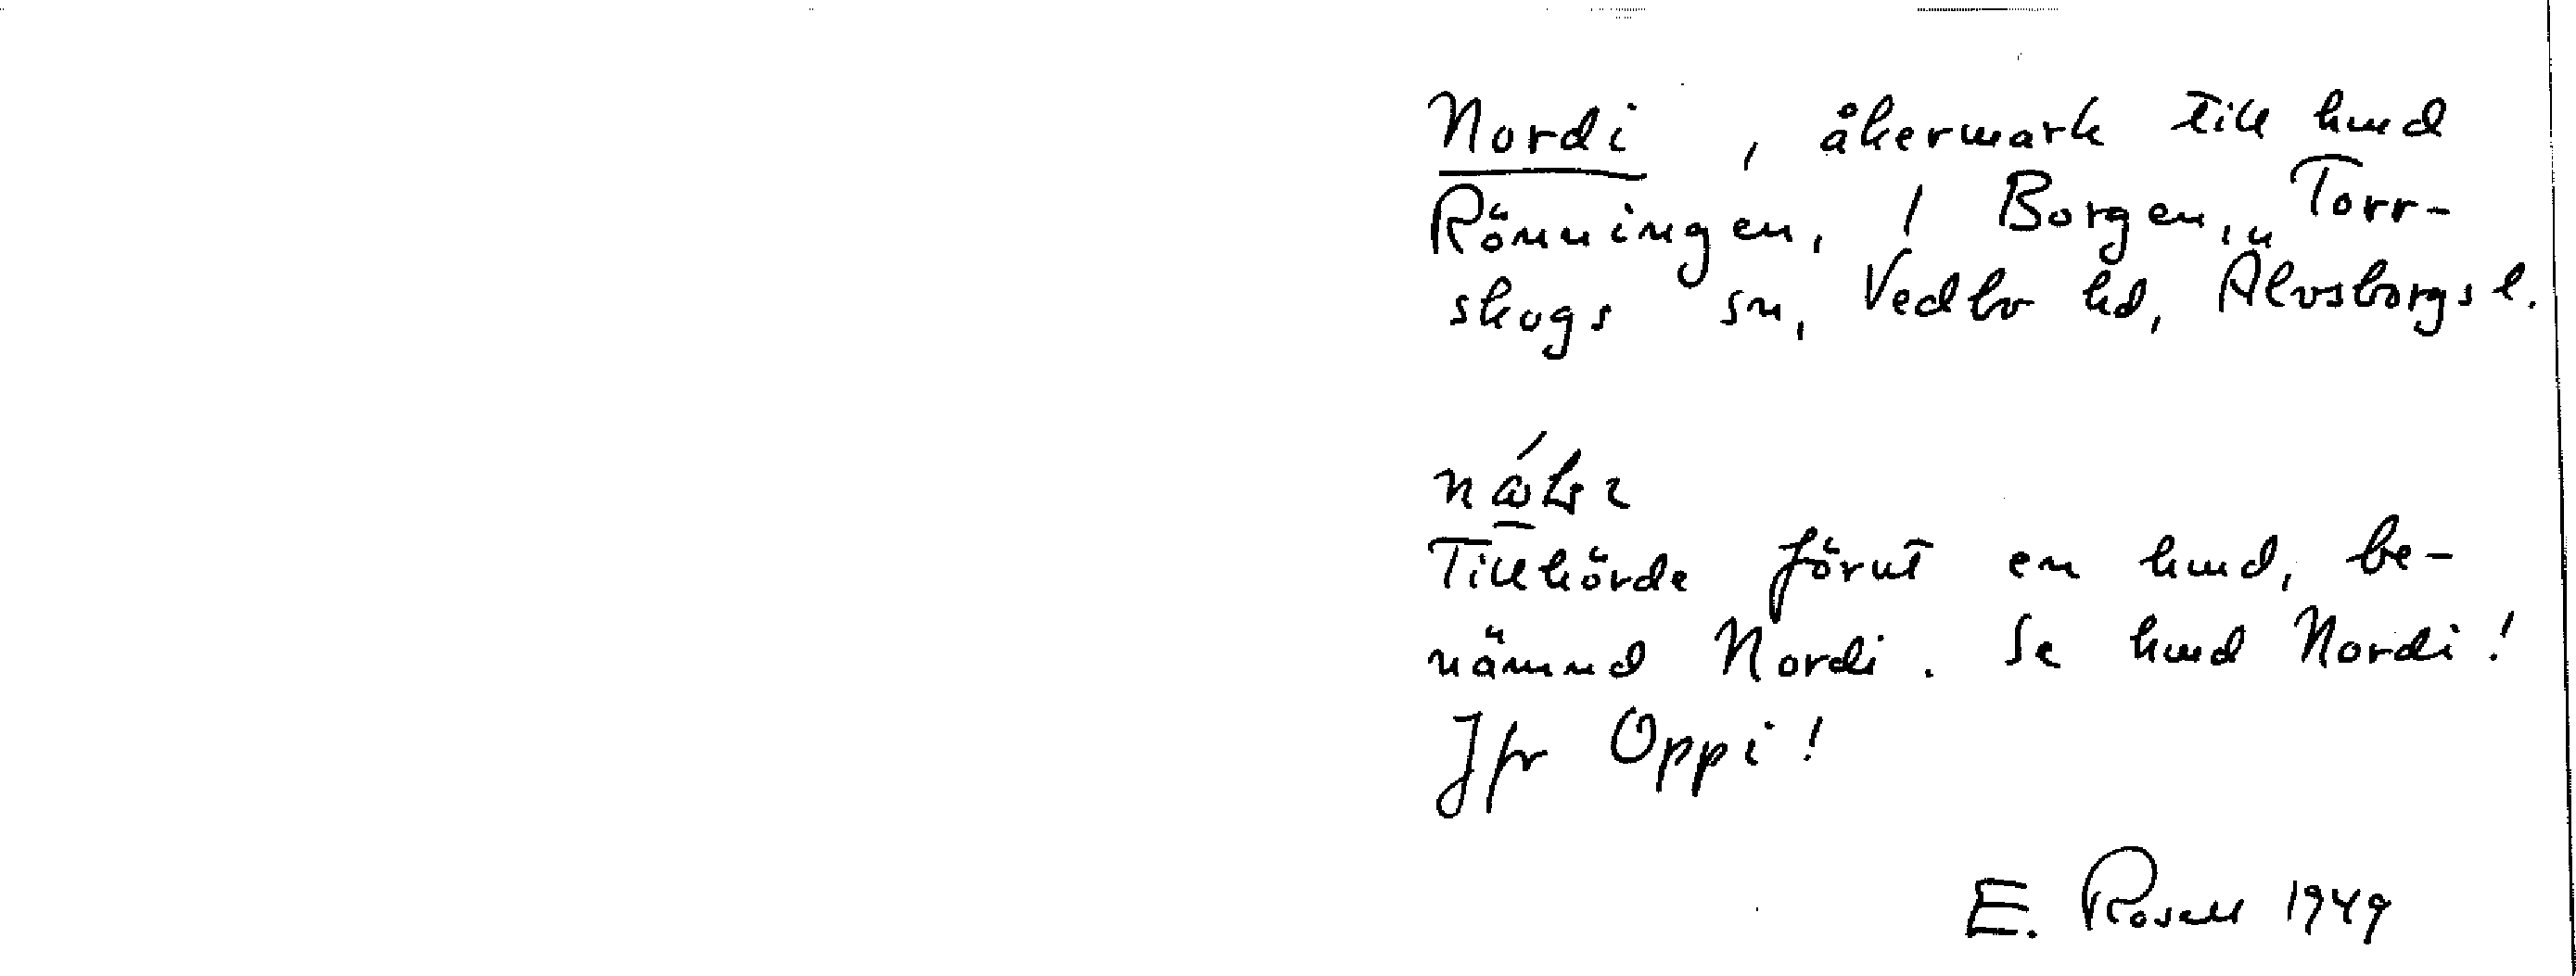 Nordi, åkermark till hmd
Rönningen, / Borgen, Torr-
skogs sn, Vedbo hd, Älvsborgs l.
Tillhörde förut en hmd, be-
nämnd Nordi. Se hmd Nordi!
Jfr Oppi!
E. Rosell 1949